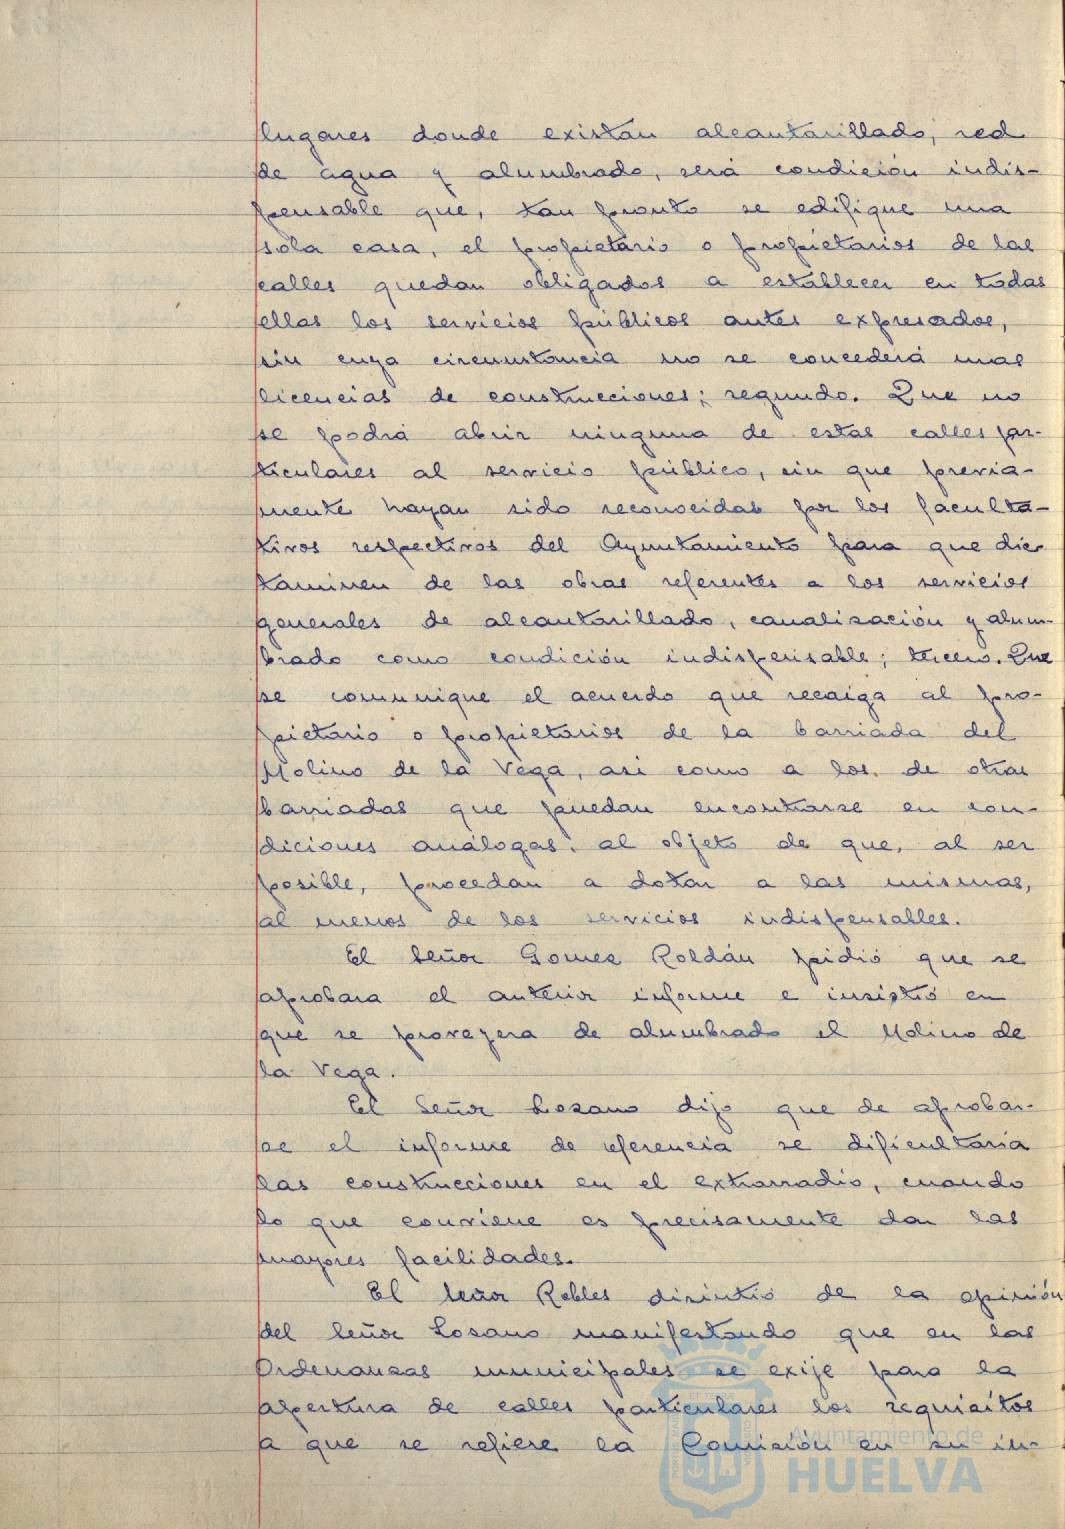 lugares donde existan alcantarillado, red
de agua y alumbrado, será condición indis-
pensable que, tan pronto se edifique una
sola casa, el propietario o propietarios de las
calles quedan obligados a establecer en todas
ellas los servicios públicos antes expresados,
sin cuya circunstancia no se concederá mas
licencias de construcciones; segundo. Que no
se podrá abrir ninguna de estas calles par-
ticulares al servicio público, sin que previa-
mente hayan sido reconocidas por los faculta-
tivos respectivos del Ayuntamiento para que dic-
taminen de las obras referentes a los servicios
generales de alcantarillado, canalización y alum-
brado como condición indispensable; tercero. Que
se comunique el acuerdo que recaiga al pro-
pietario o propietarios de la barriada del
Molino de la Vega, asi como a los de otras
barriadas que puedan encontrarse en con-
diciones análogas, al objeto de que, al ser
posible, procedan a dotar a las mismas,
al menos de los servicios indispensables.
El Señor Gomez Roldán pidió que se
aprobara el anterior informe e insistió en
que se proveyera de alumbrado el Molino de
la Vega.
El Señor Lozano dijo que de aprobar-
se el informe de referencia se dificultaria
las construcciones en el extrarradio, cuando
lo que conviene es precisamente dar las
mayores facilidades.
El Señor Robles disintió de la opinión
del Señor Lozano manifestando que en las
Ordenanzas municipales se exije para la
apertura de calles particulares los requisitos
a que se refiere la Comisión en su in-
Ayuntamiento de
HUELVA